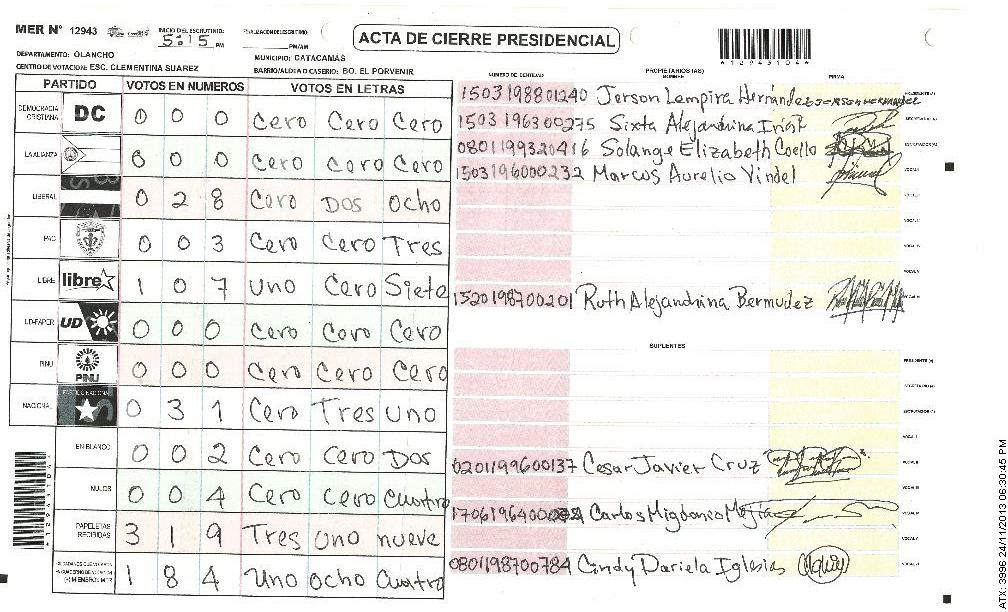 MER Nº 12943 INICIO DEL ESCRUTINIO: 5:15 PM FINALIZACION DEL ESCRUTINIO PM/AM
ACTA DE CIERRE PRESIDENCIAL
*12943104*
DEPARTAMENTO: OLANCHO MUNICIPIO: CATACAMAS
CENTRO DE VOTACION: ESC. CLEMENTINA SUAREZ BARRIO/ALDEA O CASERIO: BO. EL PORVENIR
PARTIDO VOTOS EN NUMEROS VOTOS EN LETRAS
DEMOCRACIA CRISTIANA DC 0 0 0 Cero Cero Cero
LA ALIANZA 0 0 0 Cero Cero Cero
LIBERAL 0 2 8 Cero Dos Ocho
PAC 0 0 3 Cero Cero Tres
LIBRE libre 1 0 7 Uno Cero Siete
UD-FAPER UD 0 0 0 Cero Cero Cero
PINU PINU 0 0 0 Cero Cero Cero
NACIONAL 0 3 1 Cero Tres Uno
EN BLANCO 0 0 2 Cero Cero Dos
NULOS 0 0 4 Cero Cero Cuatro
PAPELETAS RECIBIDAS 3 1 9 Tres Uno nueve
1 8 4 Uno Ocho Cuatro
NUMERO DE IDENTIDAD PROPIETARIOS (AS) NOMBRE FIRMA
1503198801240 Jerson Lempira Hernández JERSON HERNANDEZ PRESIDENTE (A)
1503196300275 Sixta Alejandrina SECRETARIO (A)
0801199320416 Solange Elizabeth Coello ESCRUTADOR (A)
1503196000232 Marcos Aurelio Vindel VOCAL I
VOCAL II
VOCAL III
VOCAL IV
VOCAL V
1520198700201 Ruth Alejandrina Bermudez
SUPLENTES
PRESIDENTE (A)
SECRETARIO (A)
ESCRUTADOR (A)
VOCAL I
0201199600137 Cesar Javier Cruz VOCAL II
VOCAL III
Carlos Migdonio Mejia VOCAL IV
VOCAL V
0801198700784 Cindy Dariela Iglesias
*12943104*
ATX: 3996 24/11/2013 06:30:45 PM